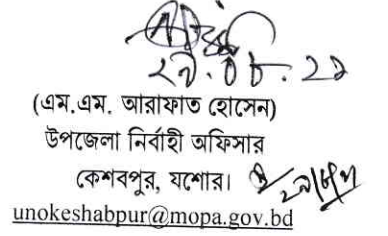 ২৯.০৮.২১
(এম.এম. আরাফাত হোসেন)
উপজেলা নির্বাহী অফিসার
কেশবপুর, যশোর।
unokeshabpur@mopa.gov.bd